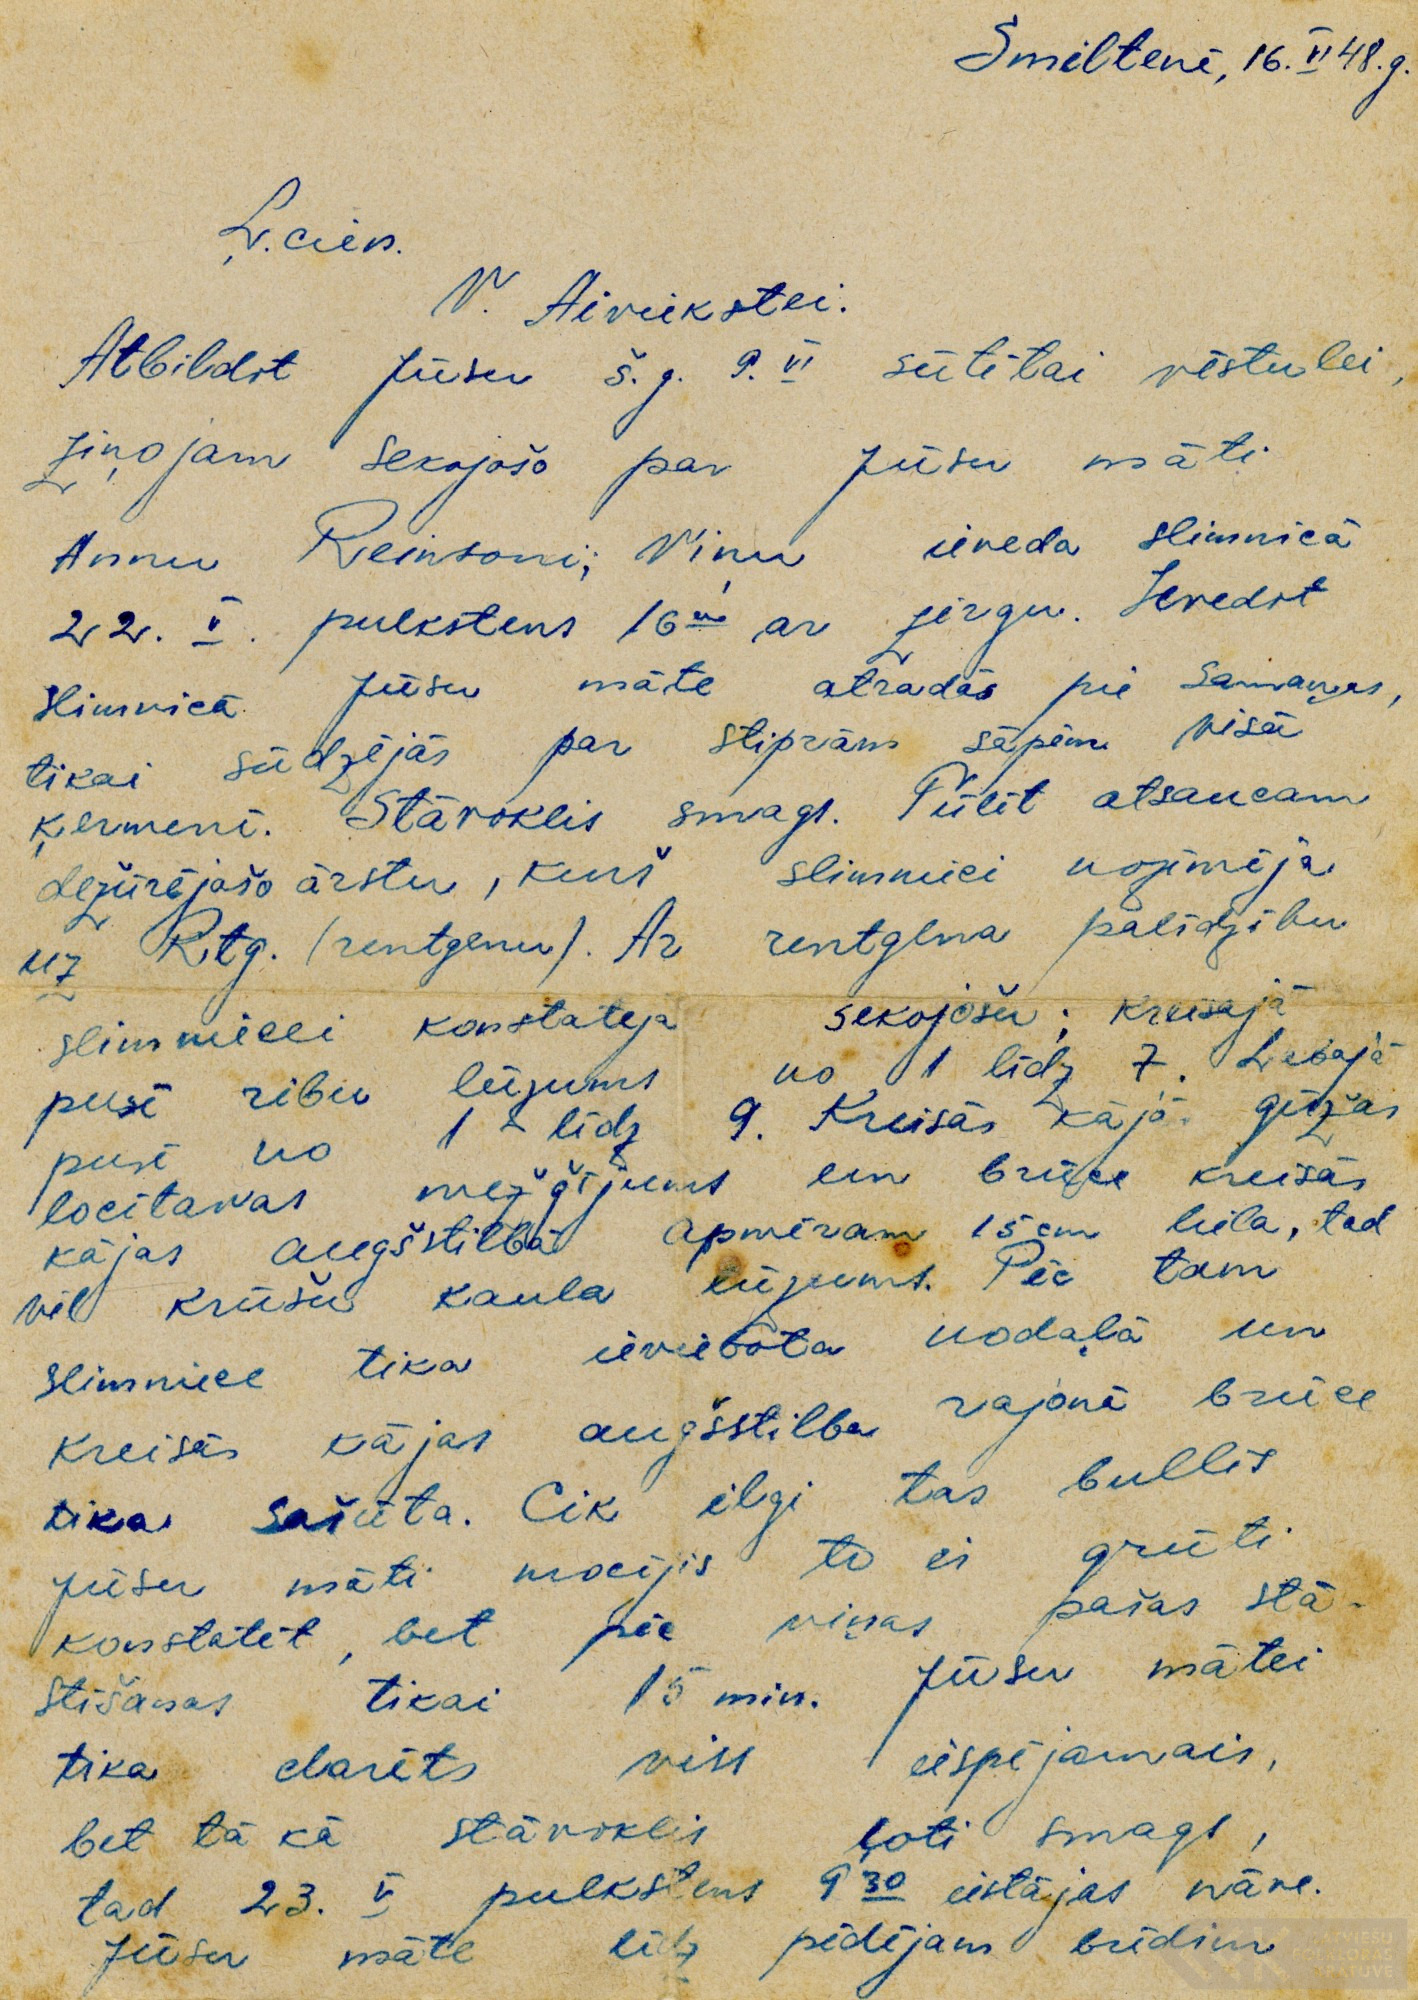 Smiltenē, 16. VI 48. g.
Ļ. cien.
V. Aiviekstei.
Atbildot Jūsu š. g. 9. VI sūtītai vēstulei,
ziņojam sekojošo par Jūsu māti
Annu Reinsoni; Viņu ieveda slimnīcā
22. V. pulkstens 16 ar zirgu. Ievedot
slimnīcā Jūsu māte atradās pie samaņas,
tikai sūdzējās par stiprām sāpēm visā
ķermenī. Stāvoklis smags. Tūlīt atsaucām
dežūrējošo ārstu, kurš slimnieci nozīmēja
uz Rtg. (rentgenu). Ar rentgena palīdzību
slimniecei konstatēja sekojošu; kreisajā
pusē ribu lūzums no 1 līdz 7. Labajā
pusē no 1 līdz 9. Kreisās kājā gūžas
locītavas mežģījums un brūce kreisās
kājas augšstilbā apmēram 15 cm liela, tad
vēl krūšu kaula lūzums. Pēc tam
slimniece tika ievietota nodaļā un
kreisās kājas augšstilba rajonā brūce
tika sašūta. Cik ilgi tas bullis
Jūsu māti mocījis to ir grūti
konstatēt, bet pēc viņas pašas stā-
stīšanas tikai 15 min. Jūsu mātei
tika darīts viss iespējamais,
bet tā kā stāvoklis ļoti smags,
tad 23. V pulkstens 9 30 iestājas nāve.
Jūsu māte līdz pēdējam brīdim